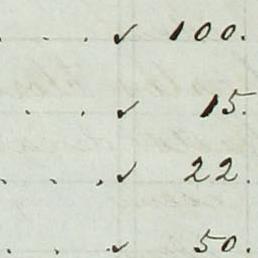 . . . ✓ 100.
. . ✓ 15.
. . . ✓ 22.
. . . ✓ 50.